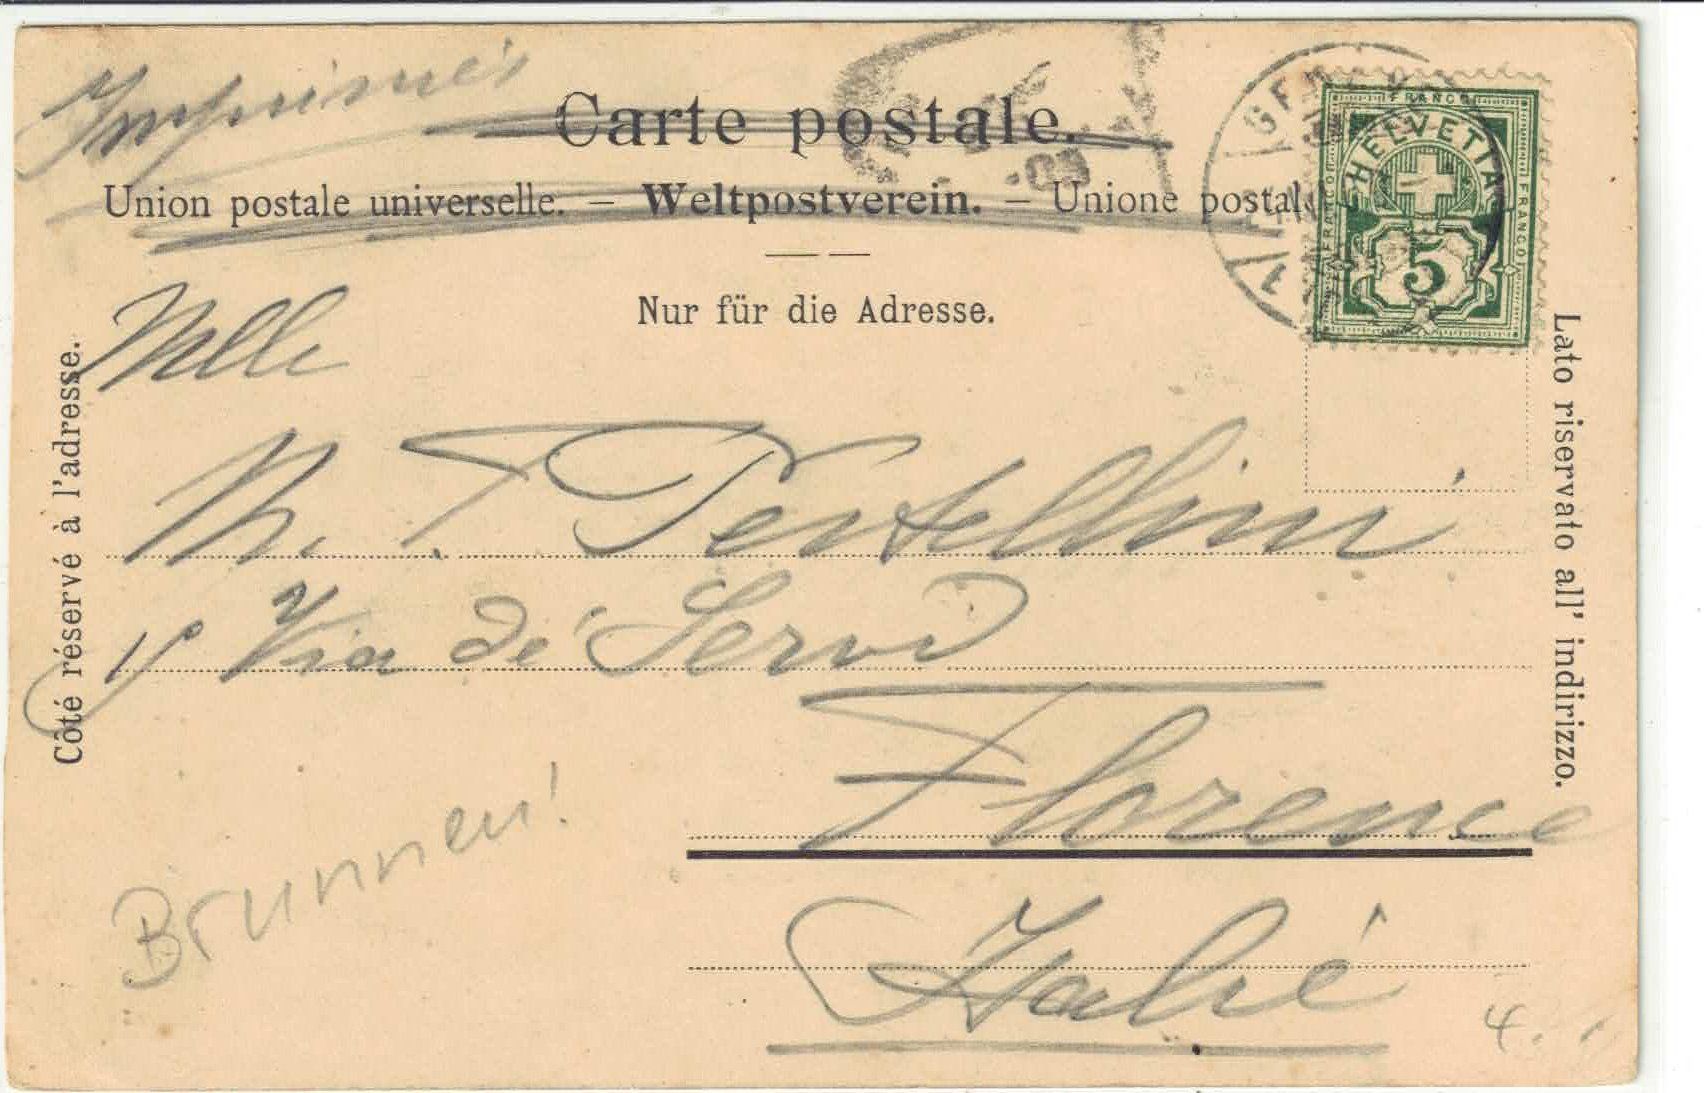 Imprimés
Carte postale.
Union postale universelle. — Weltpostverein. — Unione postal
Nur für die Adresse.
FRANCO
HELVETIA
FRANCO
FRANCO
5
Côté réservé à l'adresse.
Lato riservato all' indirizzo.
Melle
M. T. Tertellini
Via de' Servi
Florence
Italie
Brunnen!
4.